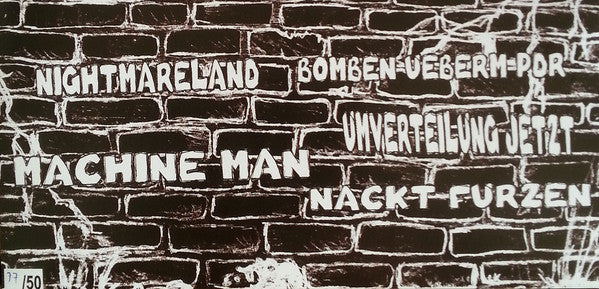 NIGHTMARELAND
BOMBEN-UEBERM-PDR
UMVERTEILUNG JETZT
MACHINE MAN
NACKT-FURZEN
/50